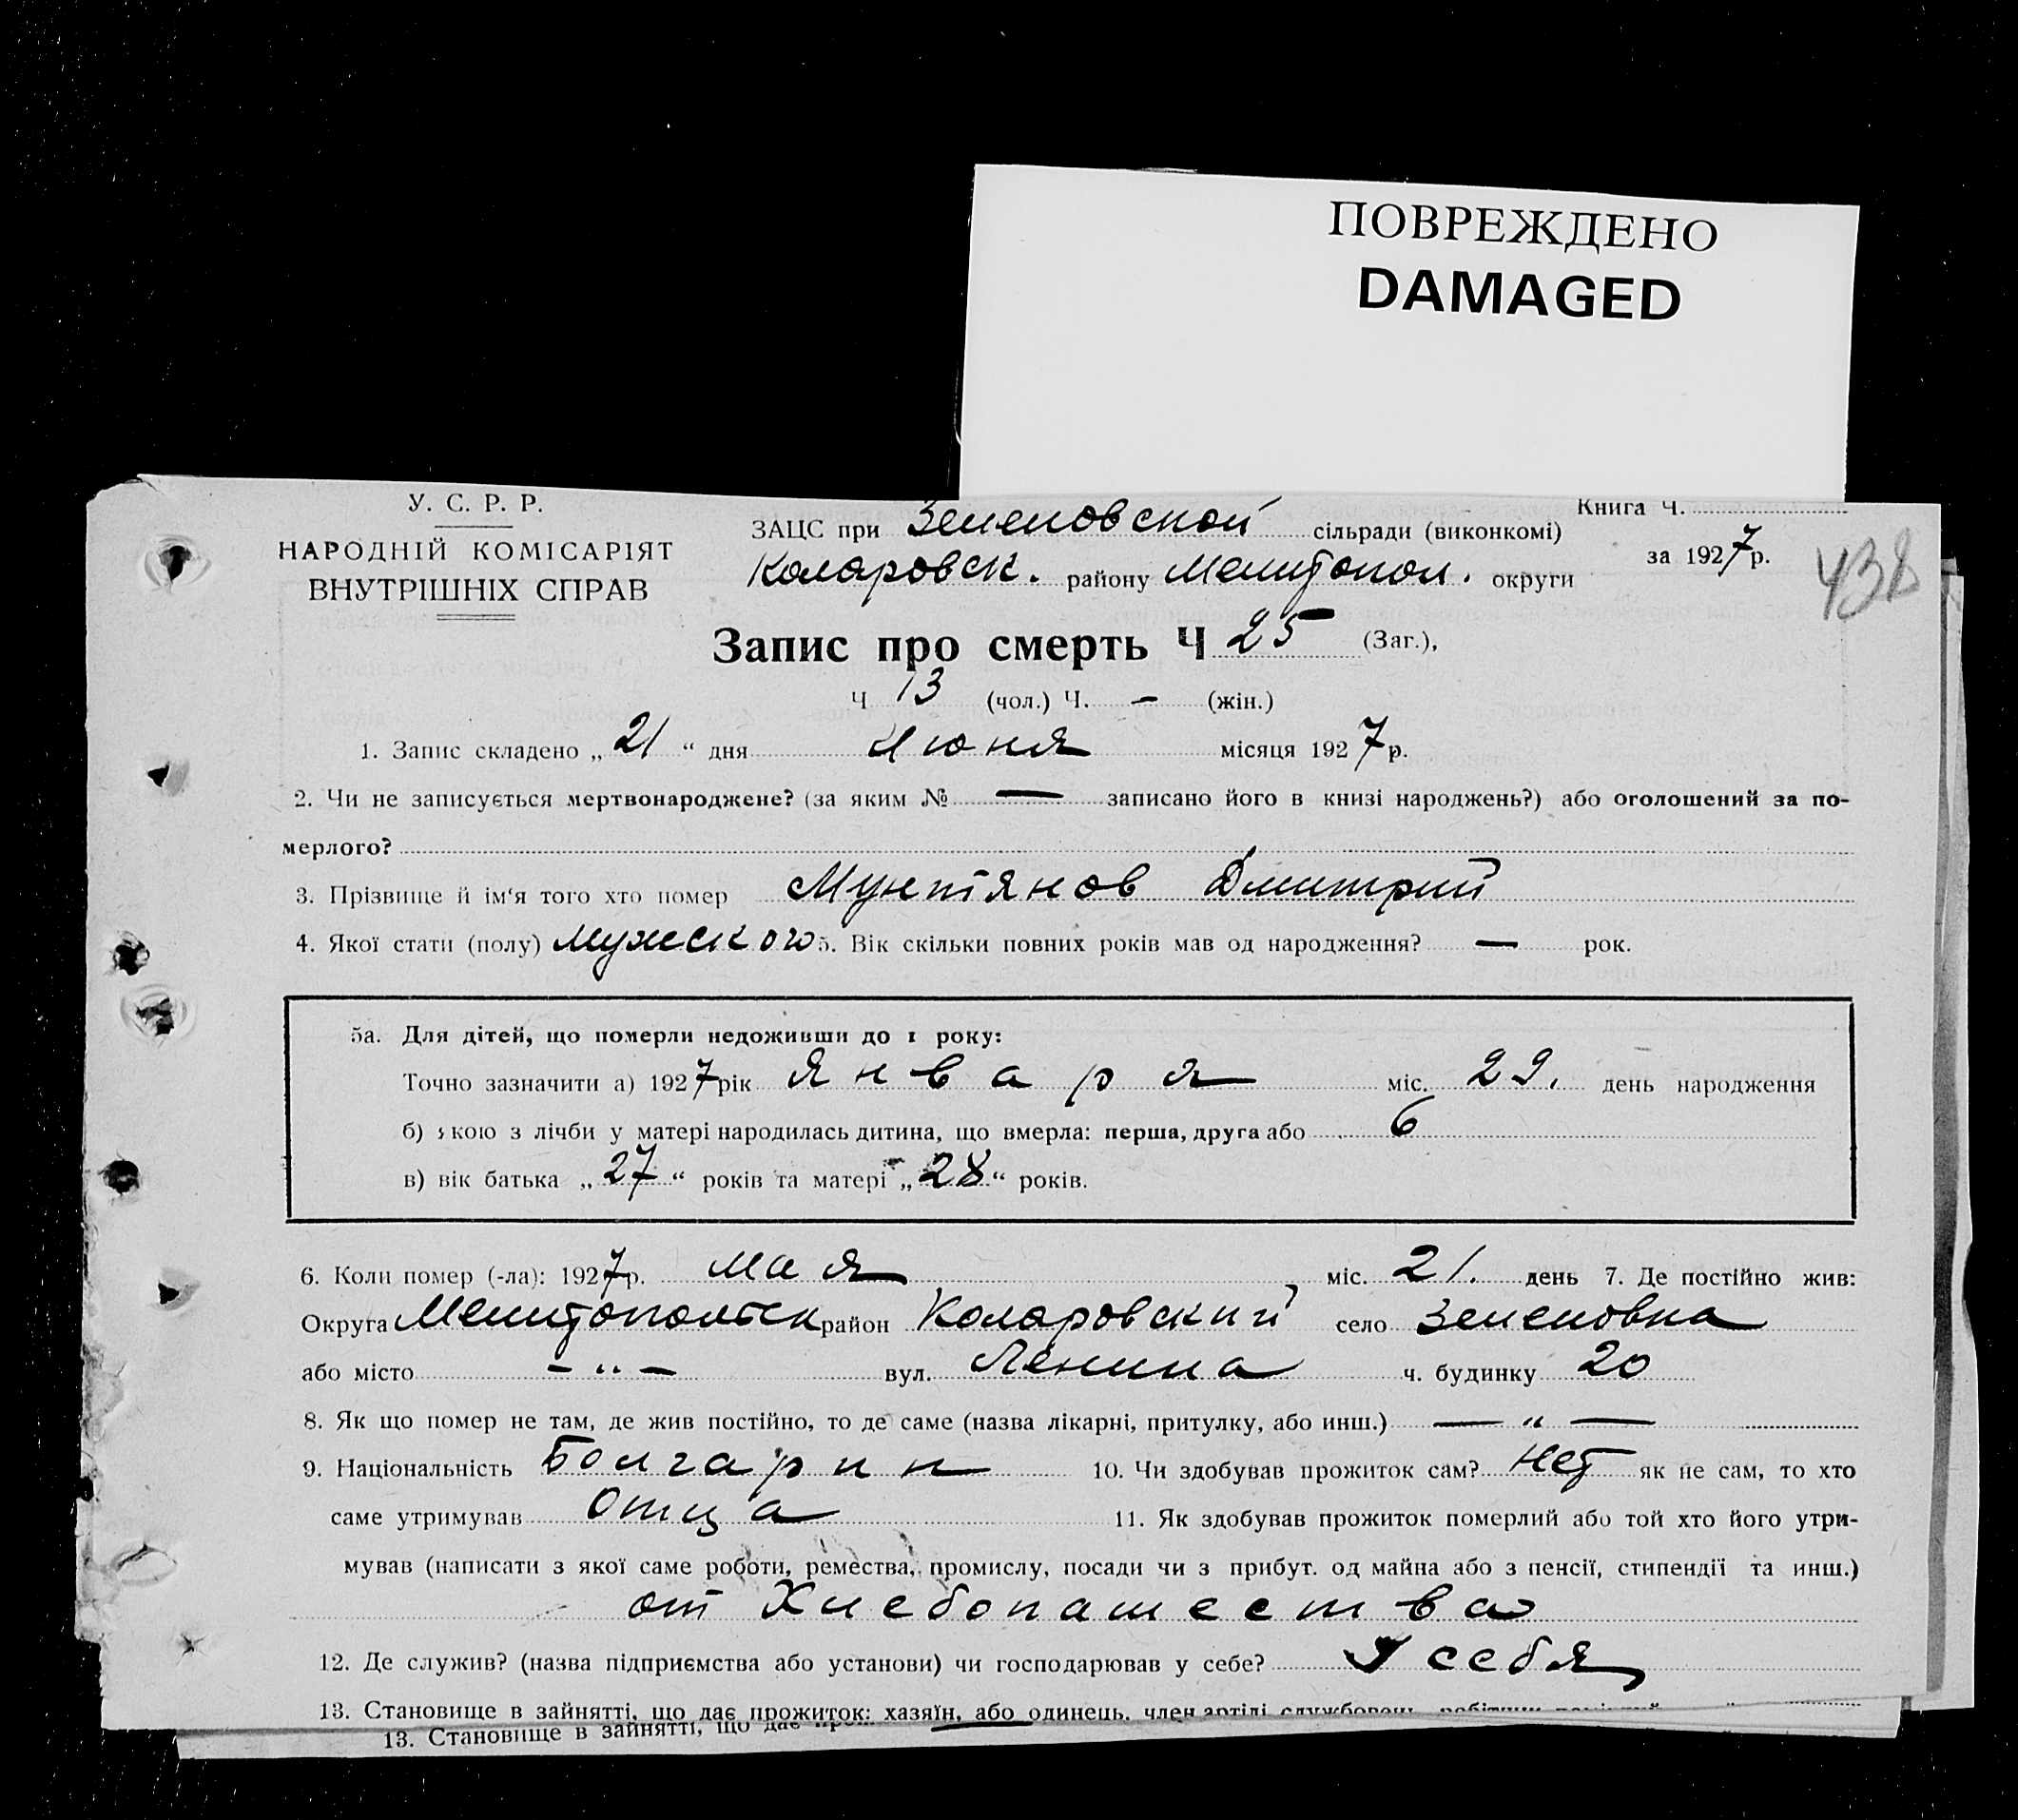 ПОВРЕЖДЕНО
DAMAGED
У. С. Р. Р.
НАРОДНІЙ КОМІСАРІЯТ
ВНУТРІШНІХ СПРАВ
Книга Ч.
ЗАЦС при Зеленовской сільради (виконкомі)
за 1927 р.
438
Коларовск. району Мелитопол. округи
Запис про смерть Ч 25 (Заг.),
Ч 13 (чол.) Ч. — (жін.)
1. Запис складено „ 21 “ дня Июня місяця 1927 р.
2. Чи не записується мертвонароджене? (за яким № — записано його в книзі народжень?) або оголошений за по-
мерлого?
3. Прізвище й ім‘я того хто помер Мунтянов Дмитрий
4. Якої стати (полу) Мужеского 5. Вік скільки повних років мав од народження? — рок.
5а. Для дітей, що померли недоживши до 1 року:
Точно зазначити а) 1927 рік Января міс. 29. день народження
б) якою з лічби у матері народилась дитина, що вмерла: перша, друга або 6
в) вік батька „ 27 “ років та матері „ 28 “ років.
6. Коли помер (-ла): 1927 р. Мая міс. 21. день 7. Де постійно жив:
Округа Мелитопольск район Коларовский село Зеленовка
або місто — “ — вул. Ленина ч. будинку 20
8. Як що помер не там, де жив постійно, то де саме (назва лікарні, притулку, або инш.) — “ —
9. Національність Болгарин 10. Чи здобував прожиток сам? Нет як не сам, то хто
саме утримував Отца 11. Як здобував прожиток померлий або той хто його утри-
мував (написати з якої саме роботи, ремества, промислу, посади чи з прибут. од майна або з пенсії, стипендії та инш.)
от Хлебопашества
12. Де служив? (назва підприємства або установи) чи господарював у себе? У себя
13. Становище в зайнятті, що дає прожиток: хазяїн, або одинець, член артілі службовець
13. Становище в зайнятті, що дає